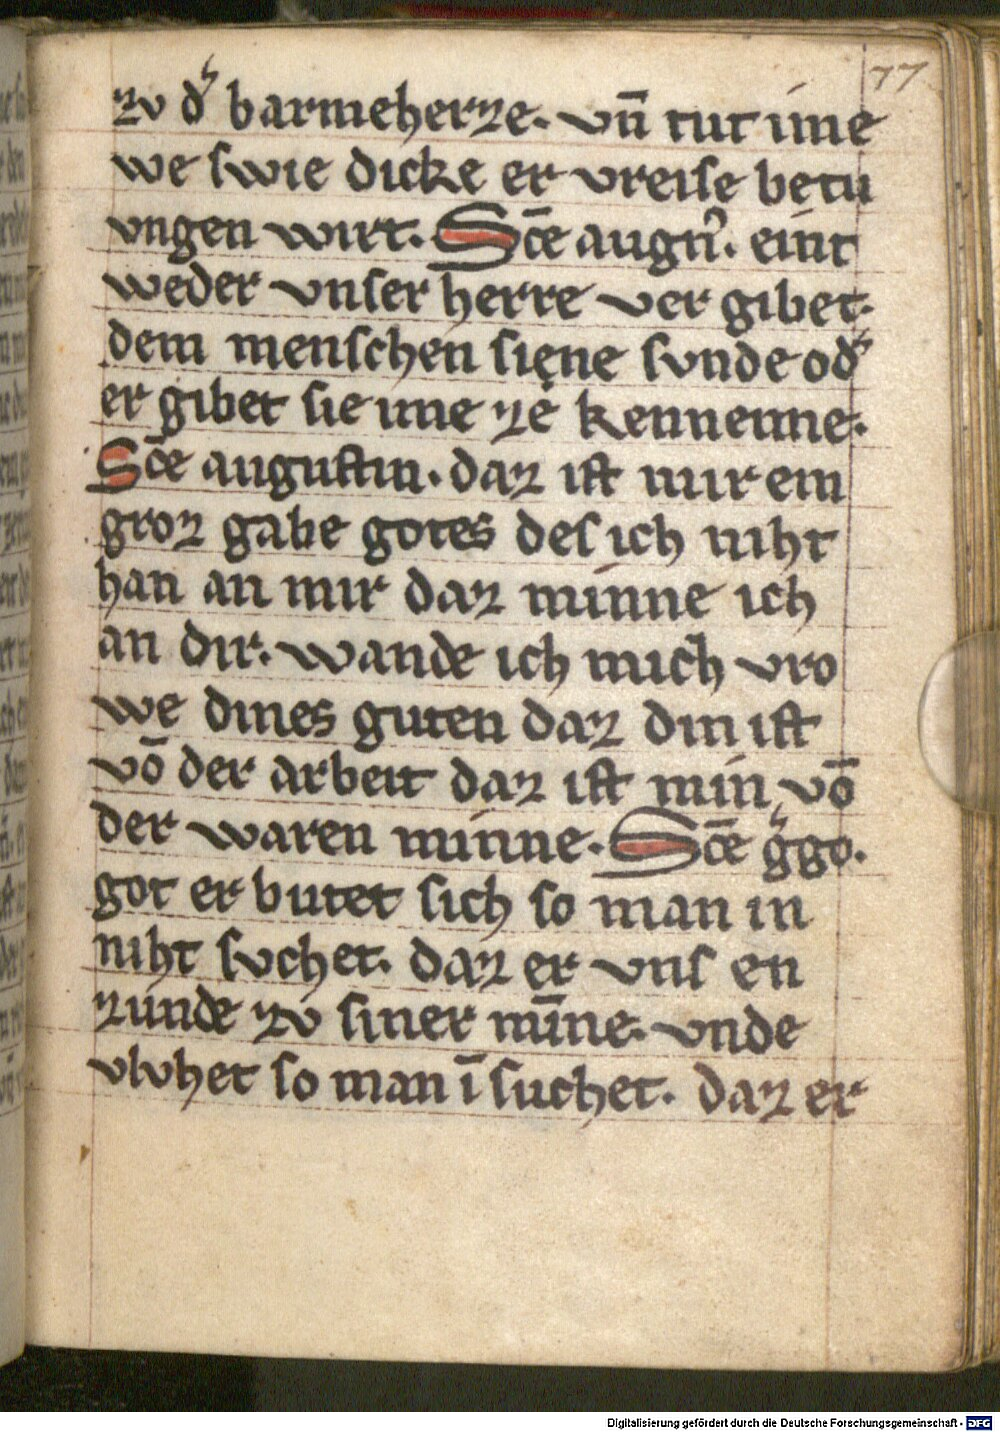 77
zv dˀ barmeherze. vn̄ tut ime
we swie dicke er vreise betu
vngen wirt. Sc̄e augn̾. eint
weder vnser herre ver gibet.
dem menschen sięne svnde odˀ
er gibet sie ime ze kennenne.
Sc̄e augustin. daz ist mir ein
groz gabe gotes des ich niht
han an mir daz minne ich
an dir. wande ich mich vro
we dines guten daz din ist
vō der arbeit daz ist min vō
der waren minne. Sc̄e gˀgo.
got er butet sich so man in
niht svchet. daz er vns en
zunde zv siner mīne. vnde
vlvhet so man ī suchet. daz er
Digitalisierung gefördert durch die Deutsche Forschungsgemeinschaft - DFG